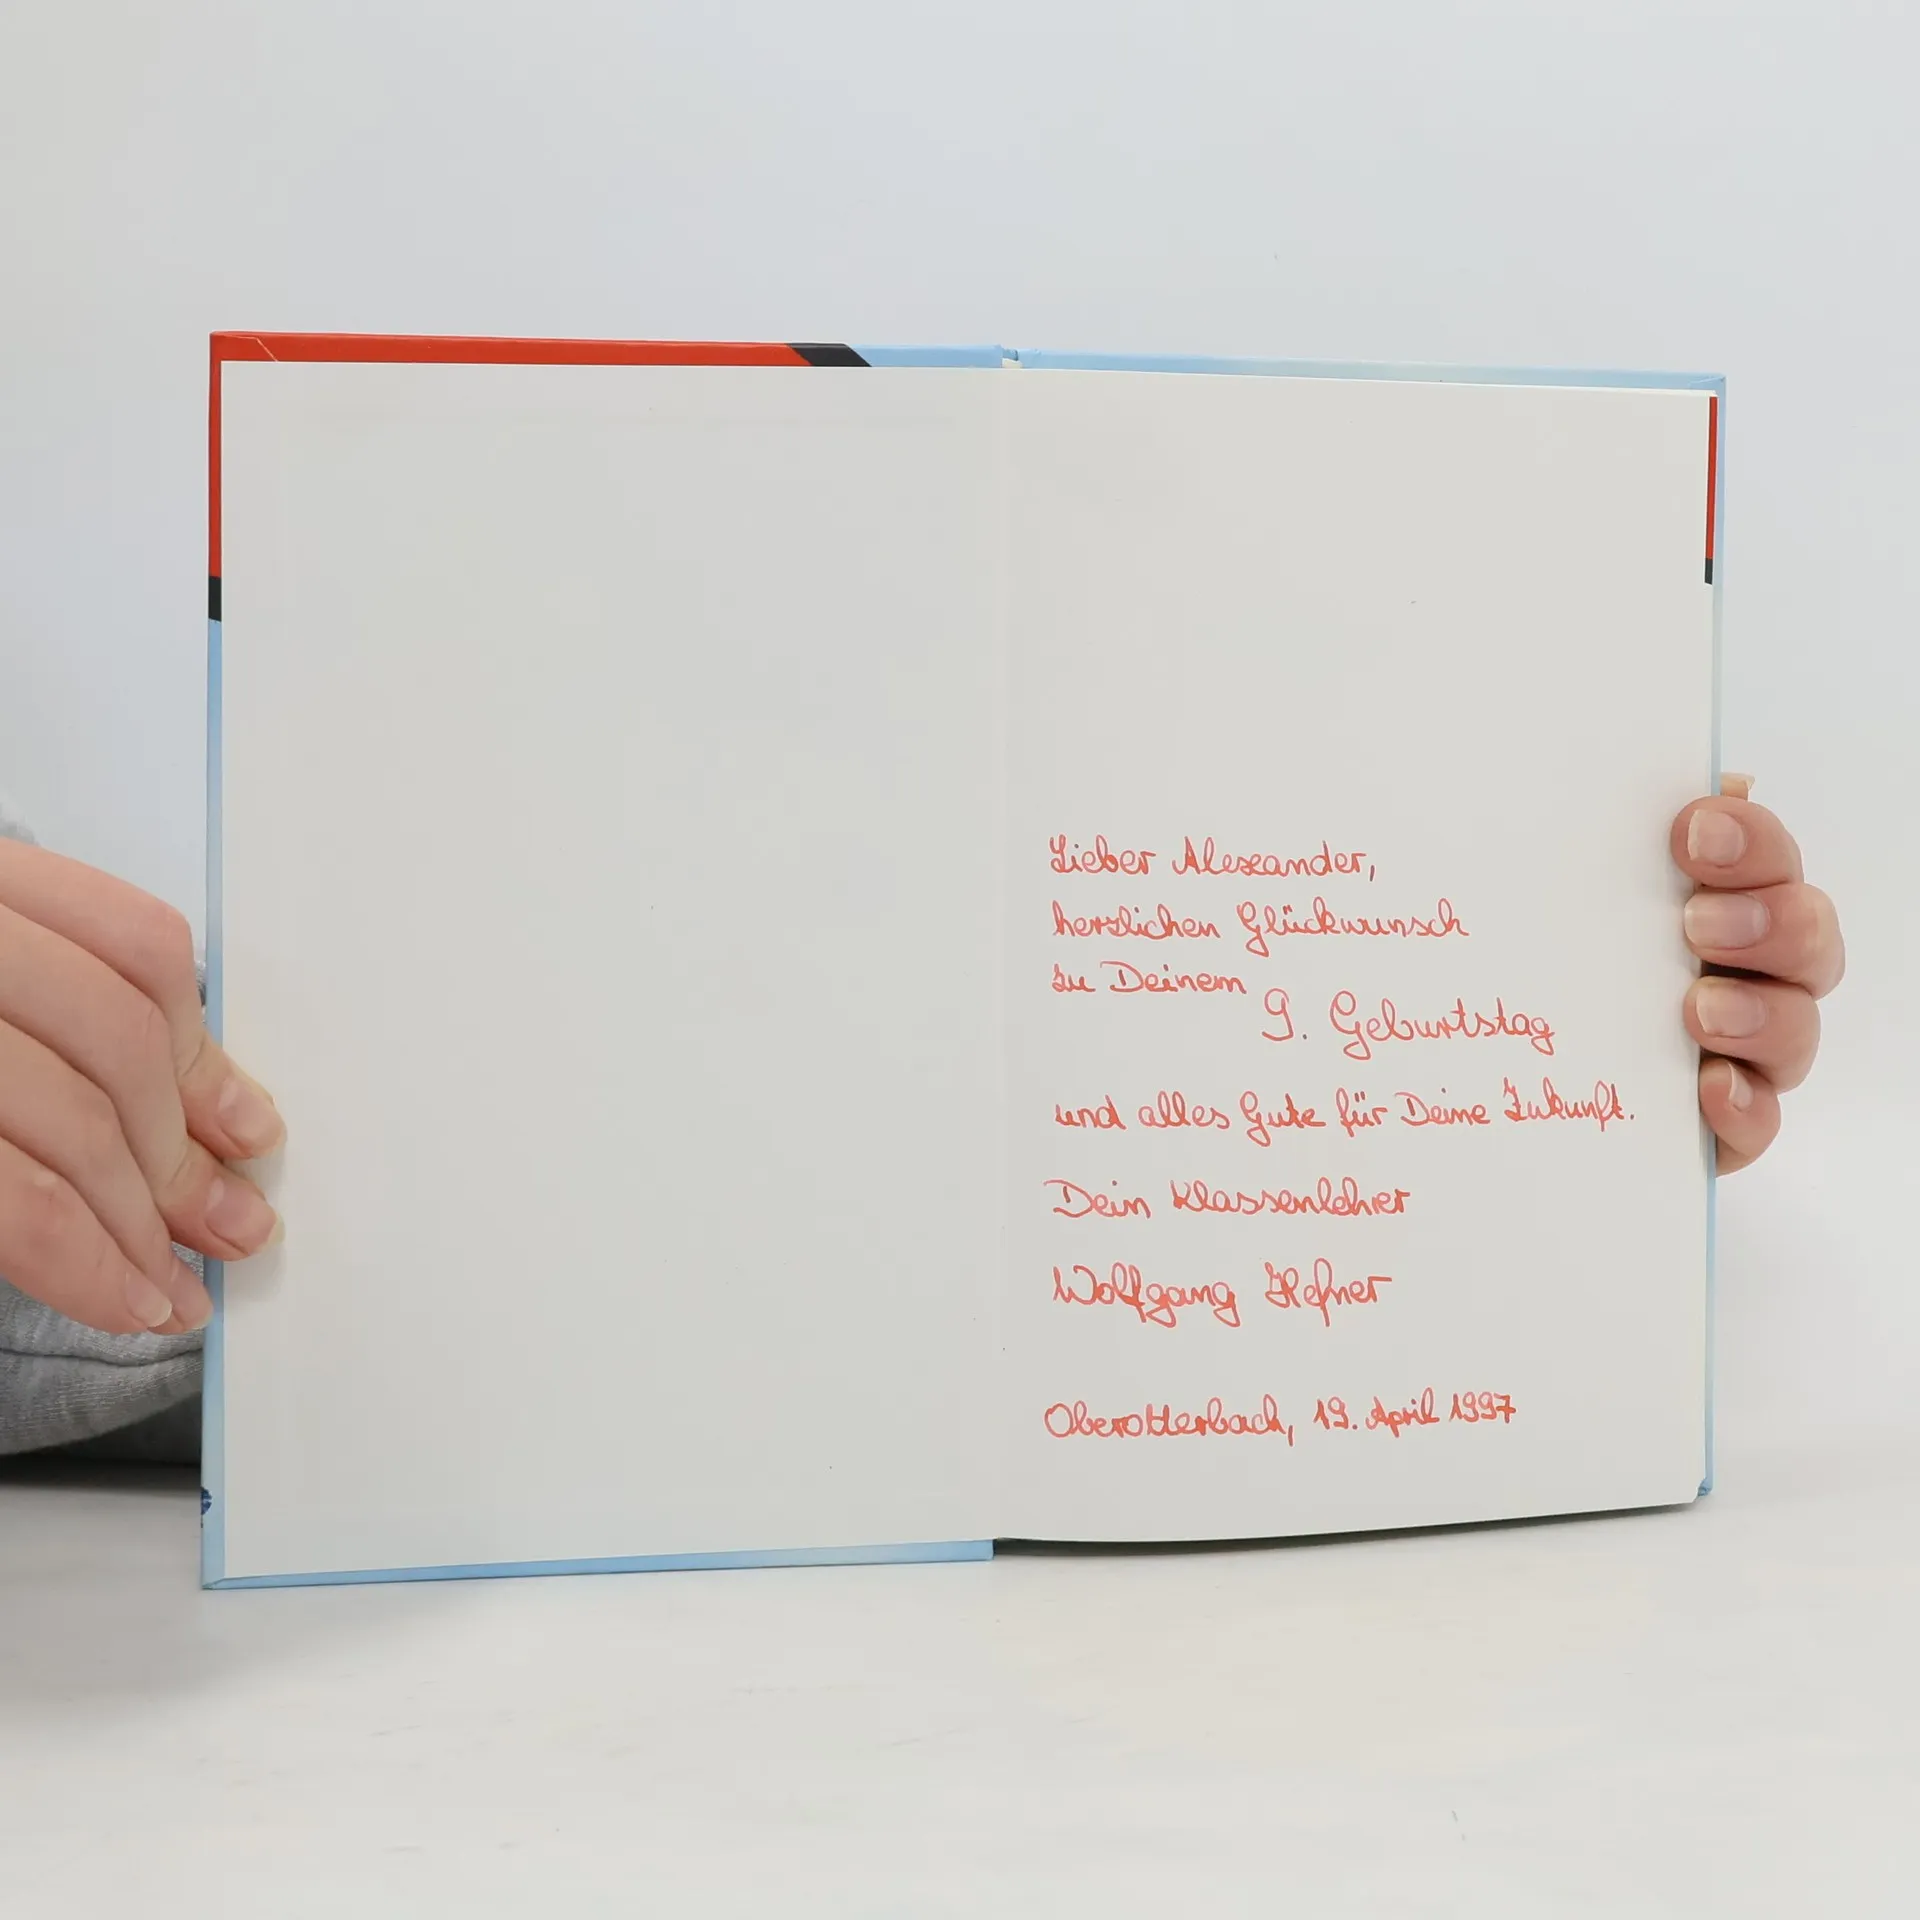 Lieber Alexander,
herzlichen Glückwunsch
zu Deinem
9. Geburtstag
und alles Gute für Deine Zukunft.
Dein Klassenlehrer
Wolfgang Hefner
Oberotterbach, 19. April 1997